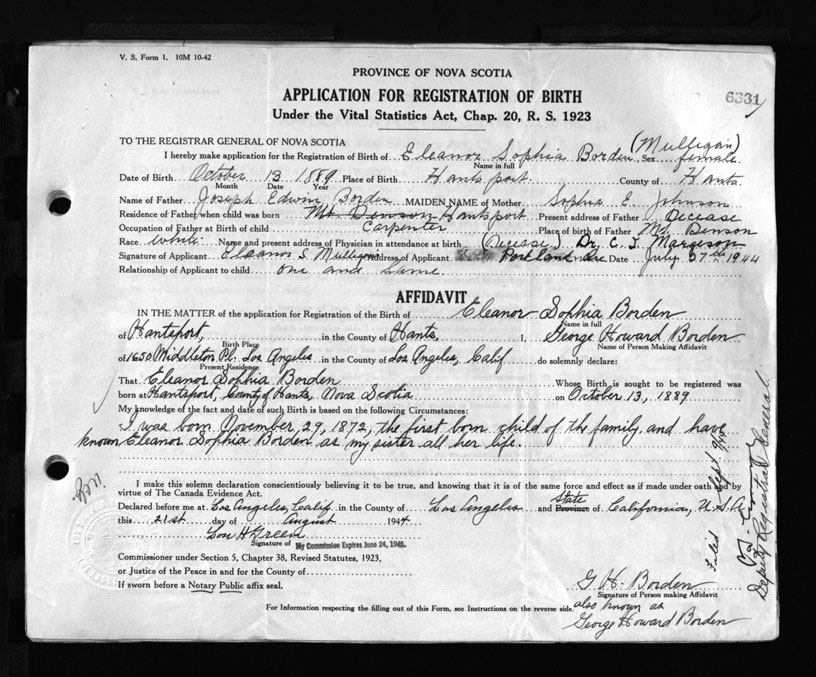 V. S. Form 1. 10M 10-42
PROVINCE OF NOVA SCOTIA
6331
APPLICATION FOR REGISTRATION OF BIRTH
Under the Vital Statistics Act, Chap. 20, R. S. 1923
TO THE REGISTRAR GENERAL OF NOVA SCOTIA
(Mulligan)
I hereby make application for the Registration of Birth of Eleanor Sophia Borden Sex female
Name in full
Date of Birth October 13 1889 Place of Birth Hantsport County of Hants
Month Date Year
Name of Father Joseph Edwin Borden MAIDEN NAME of Mother Sophia E. Johnson
Residence of Father when child was born Mt. Denson Hantsport Present address of Father Decease
Occupation of Father at Birth of child Carpenter Place of birth of Father Mt. Denson
Race White Name and present address of Physician in attendance at birth (Decease) Dr. C. I. Margeson
Signature of Applicant Eleanor S. Mulligan Address of Applicant Portland Date July 27th 1944
Relationship of Applicant to child one and same.
AFFIDAVIT
IN THE MATTER of the application for Registration of the Birth of Eleanor Sophia Borden
Name in full
of Hantsport, in the County of Hants, I, George Howard Borden
Birth Place Name of Person Making Affidavit
of 1650 Middleton Pl. Los Angeles in the County of Los Angeles, Calif do solemnly declare:
Present Residence
That Eleanor Sophia Borden Whose Birth is sought to be registered was
born at Hantsport, County of Hants, Nova Scotia on October 13, 1889
My knowledge of the fact and date of such Birth is based on the following Circumstances:
I was born November 29, 1872, the first born child of the family, and have
known Eleanor Sophia Borden as my sister all her life.
I make this solemn declaration conscientiously believing it to be true, and knowing that it is of the same force and effect as if made under oath and by
virtue of The Canada Evidence Act.
State
Declared before me at Los Angeles, Calif. in the County of Los Angeles and Province of California, U.S.A.
this 21st day of August 1944
Lon H Green
Signature of My Commission Expires June 24, 1945.
Commissioner under Section 5, Chapter 38, Revised Statutes, 1923,
or Justice of the Peace in and for the County of
If sworn before a Notary Public affix seal.
G. H. Borden
Signature of Person making Affidavit
For Information respecting the filling out of this Form, see Instructions on the reverse side.
also known as
George Howard Borden
Filed Sept
Deputy Registrar General